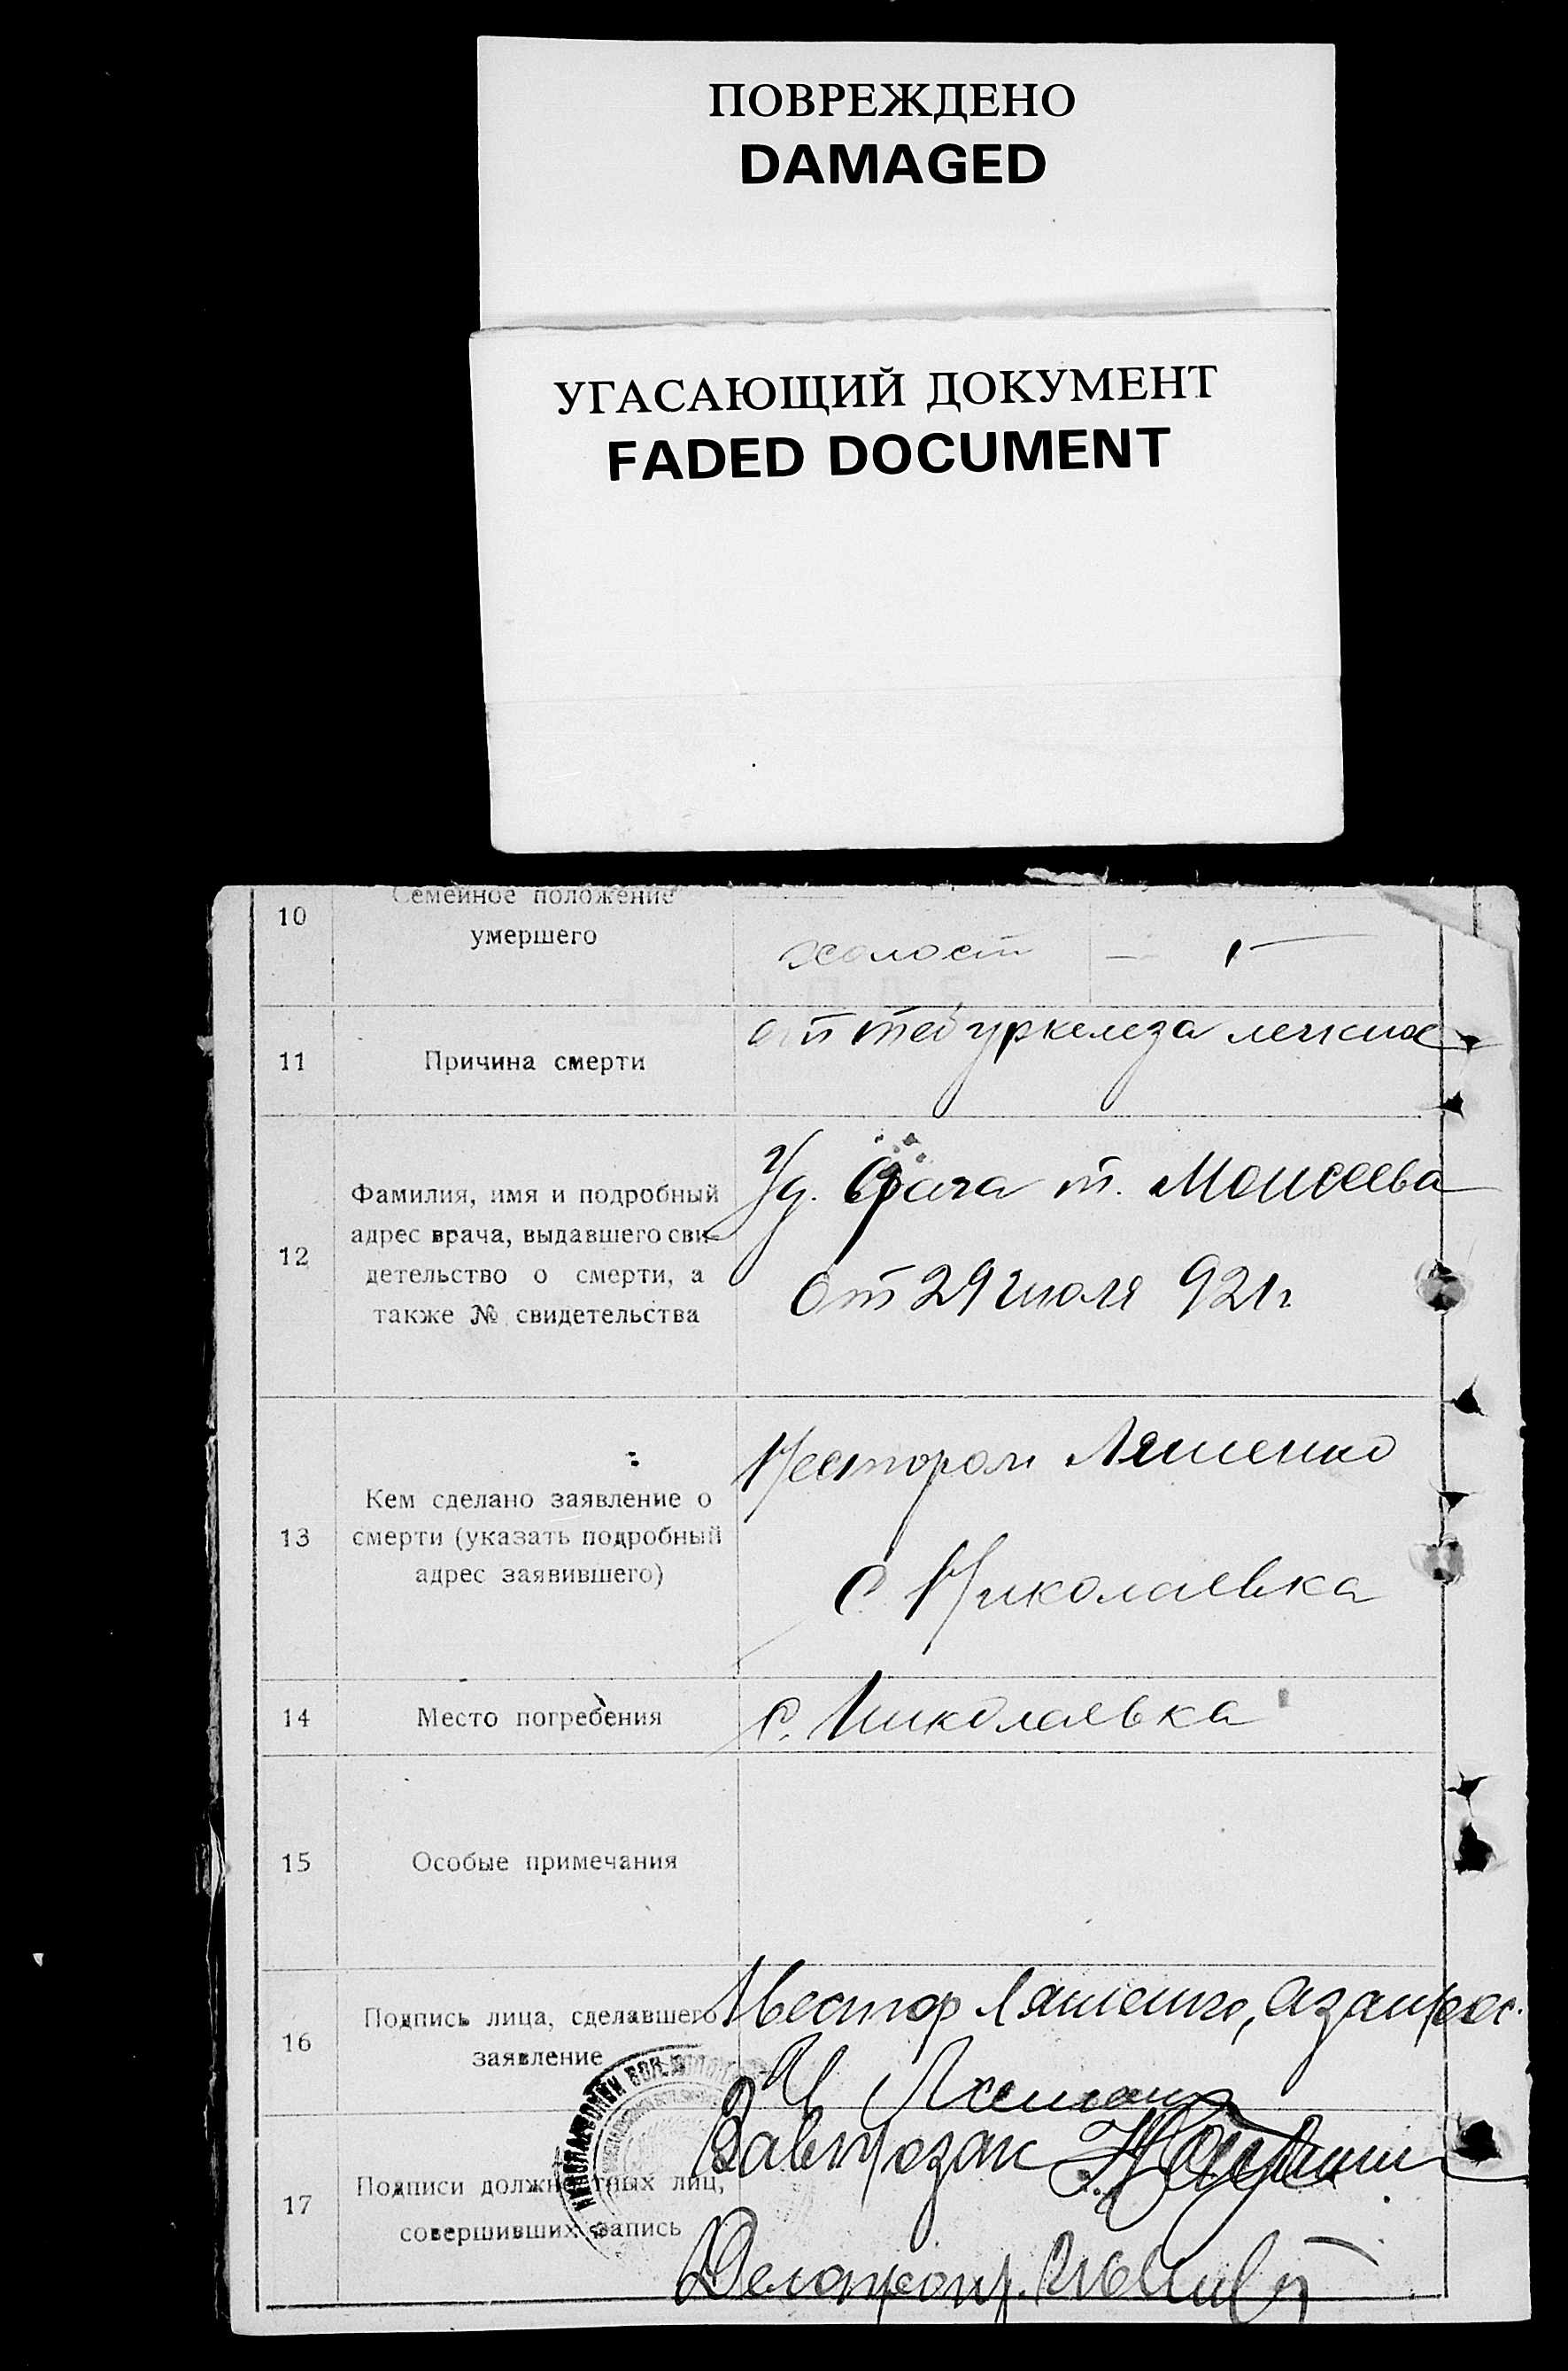 ПОВРЕЖДЕНО
DAMAGED
УГАСАЮЩИЙ ДОКУМЕНТ
FADED DOCUMENT
10
Семейное положение
умершего
холост —
11
Причина смерти
от тебуркелеза легких
12
Фамилия, имя и подробный
адрес врача, выдавшего сви-
детельство о смерти, а
также № свидетельства
Уд. врача т. Моисеева
от 29 июля 921г
13
Кем сделано заявление о
смерти (указать подробный
адрес заявившего)
Нестором Ляшенко
С. Николаевка
14
Место погребения
с. Николаевка
15
Особые примечания
16
Подпись лица, сделавшего
заявление
Нестор Ляшенко, а за
17
Подписи должностных лиц,
совершивших запись
Завподзаг
Делопроизв.